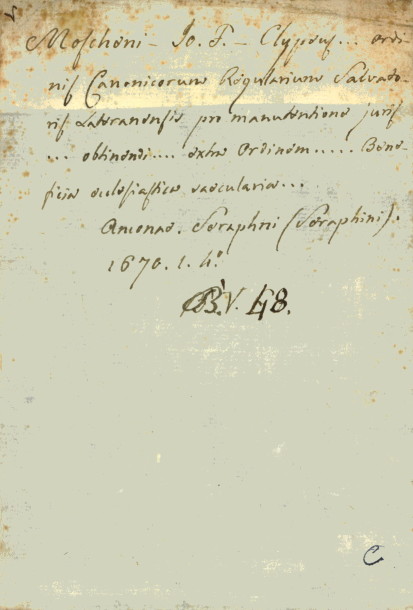 Moscheni – Jo. F. – Clypeus... ordi-
nis Canonicorum Regularium Salvato-
ris Lateranensis pro manutentione juris
... obtinendi.... extra Ordinem..... Bene-
ficia ecclesiastica saecularia...
Anconae. Seraphni (Seraphini).
1670. 1. 4.º
B. V. 48.
C